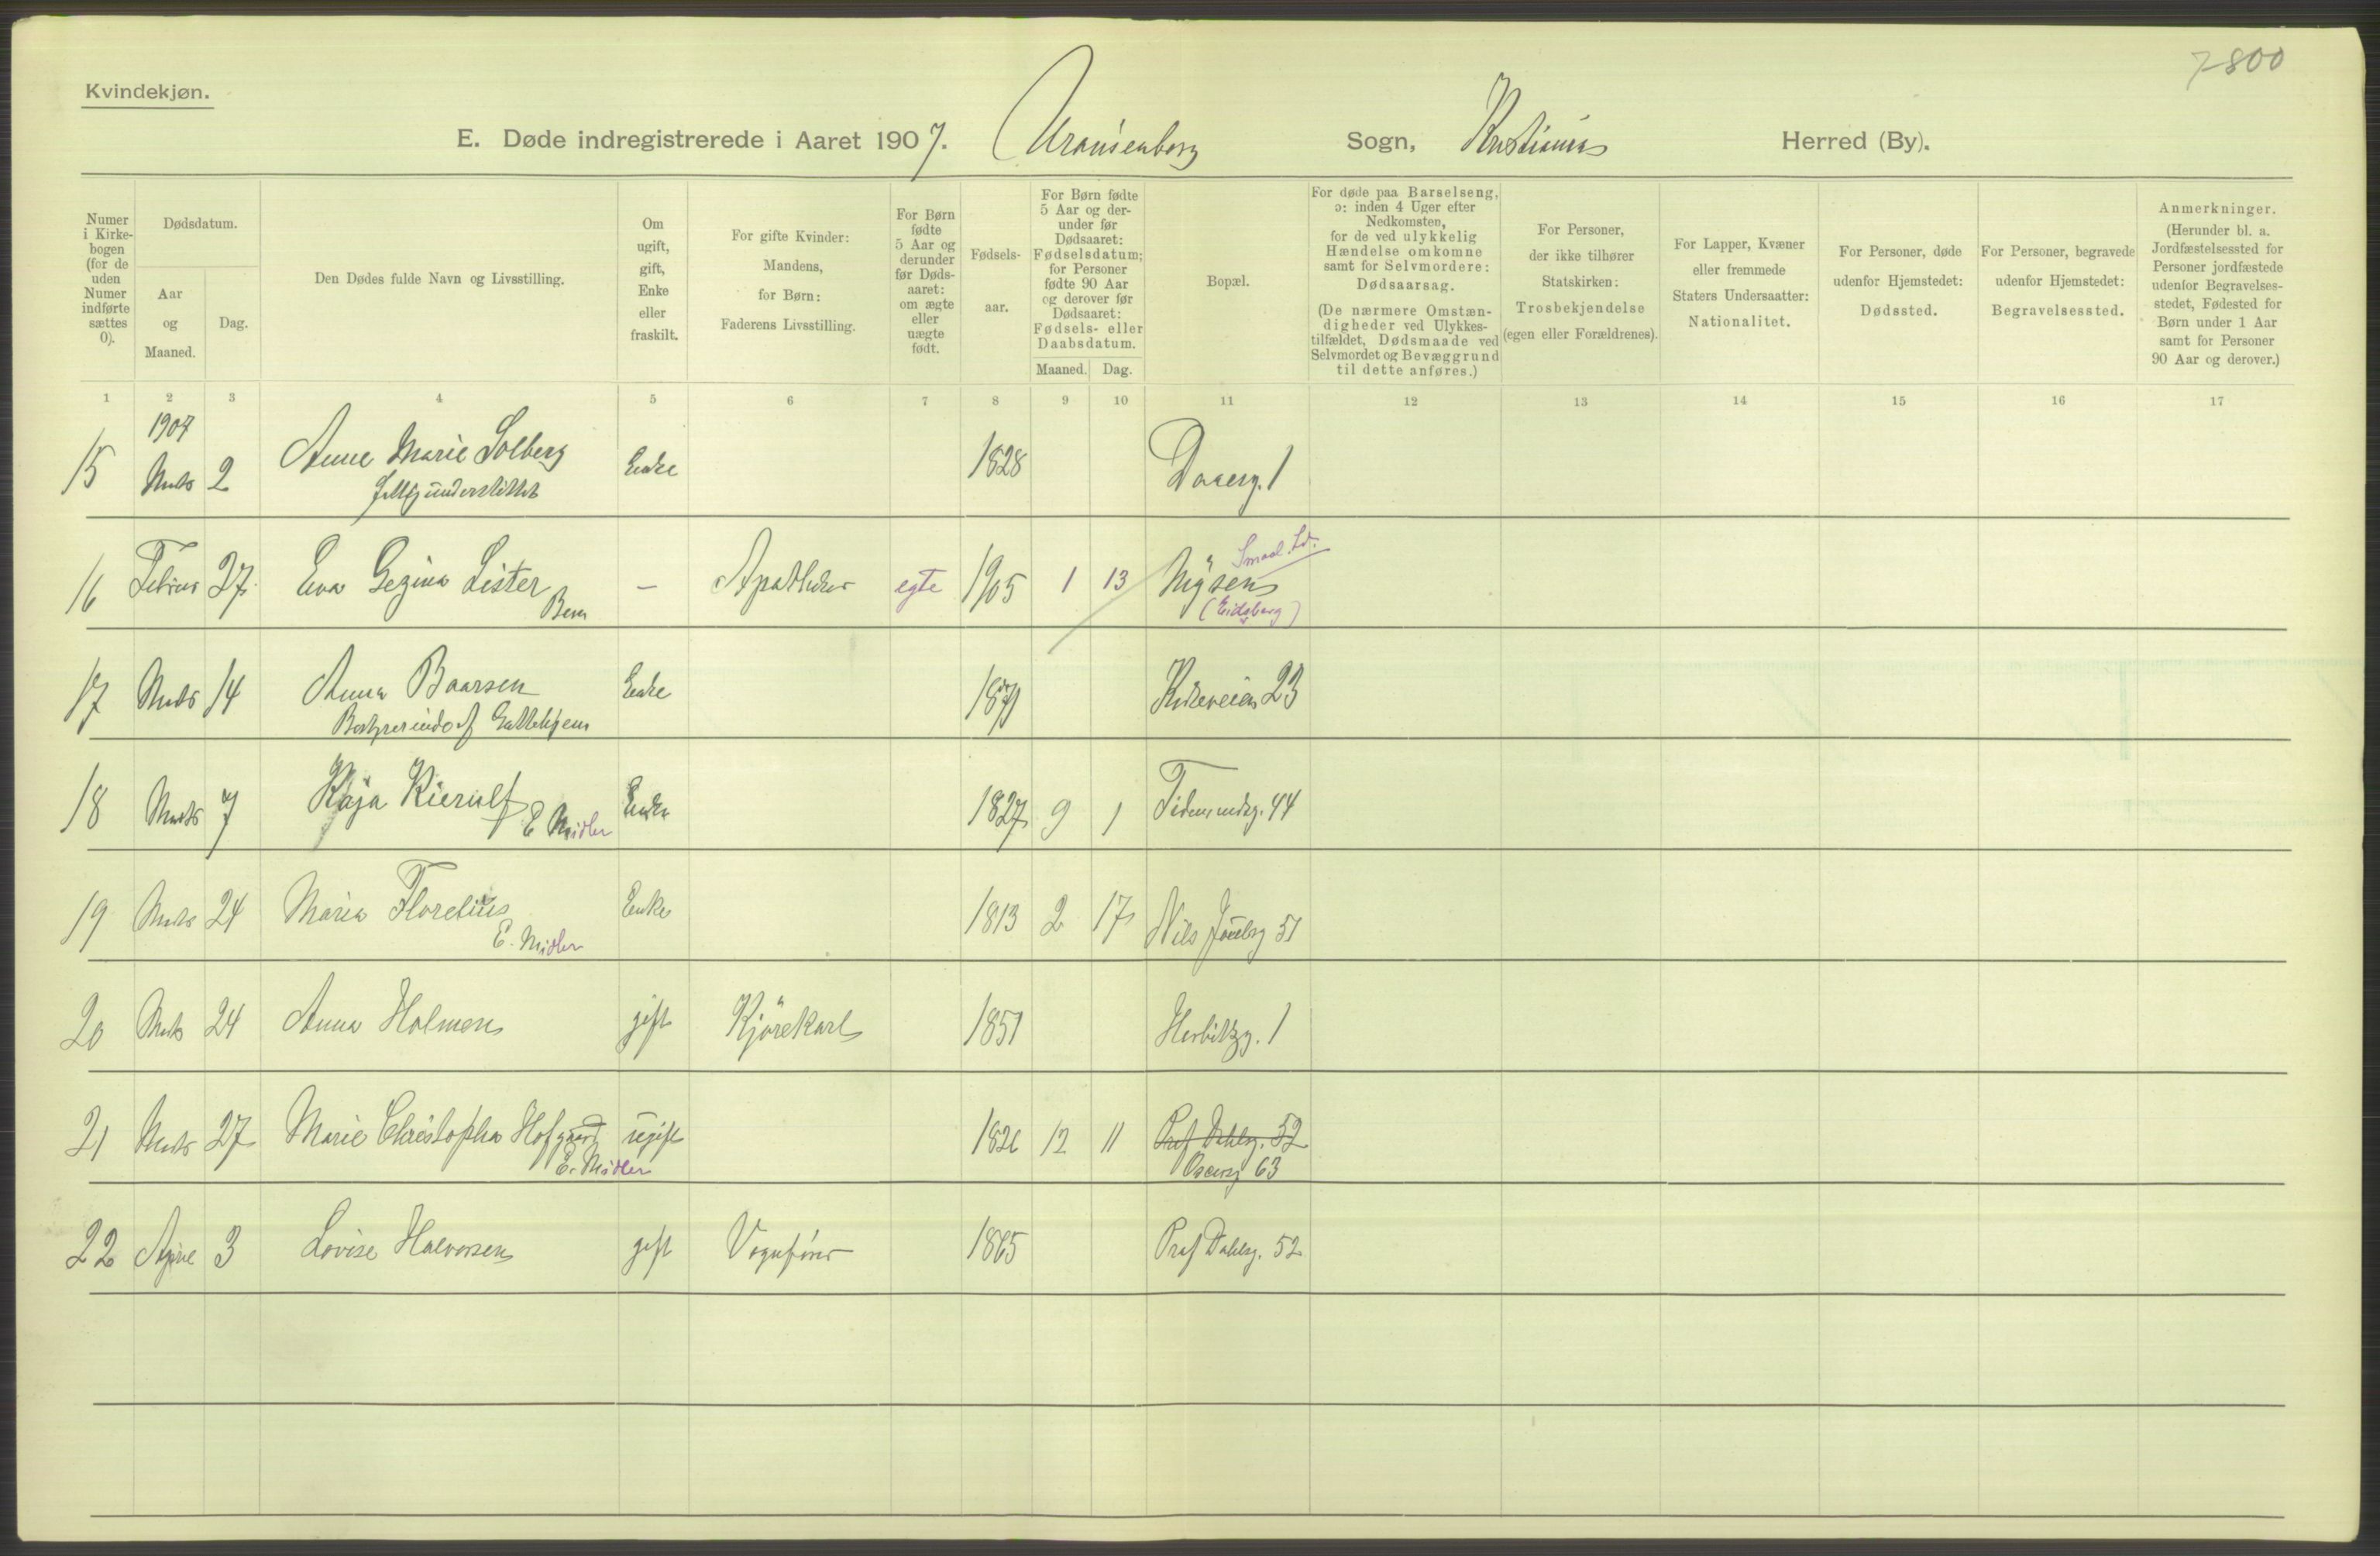 7800
Kvindekjøn.
E. Døde indregistrerede i Aaret 1907. Uranienborg Sogn, Kristiania Herred (By).
Numer i Kirke-bogen (for de uden Numer indførte sættes 0).
Dødsdatum.
Aar og Maaned.
Dag.
Den Dødes fulde Navn og Livsstilling.
Om ugift, gift, Enke eller fraskilt.
For gifte Kvinder: Mandens, for Børn: Faderens Livsstilling.
For Børn fødte 5 Aar og derunder før Døds-aaret: om ægte eller uægte født.
Fødsels-aar.
For Børn fødte 5 Aar og der-under før Dødsaaret: Fødselsdatum; for Personer fødte 90 Aar og derover før Dødsaaret: Fødsels- eller Daabsdatum.
Maaned. Dag.
Bopæl.
For døde paa Barselseng, ɔ: inden 4 Uger efter Nedkomsten, for de ved ulykkelig Hændelse omkomne samt for Selvmordere: Dødsaarsag.
(De nærmere Omstæn-digheder ved Ulykkes-tilfældet, Dødsmaade ved Selvmordet og Bevæggrund til dette anføres.)
For Personer, der ikke tilhører Statskirken: Trosbekjendelse (egen eller Forældrenes).
For Lapper, Kvæner eller fremmede Staters Undersaatter: Nationalitet.
For Personer, døde udenfor Hjemstedet: Dødssted.
For Personer, begravede udenfor Hjemstedet: Begravelsessted.
Anmerkninger. (Herunder bl. a. Jordfæstelsessted for Personer jordfæstede udenfor Begravelses-stedet, Fødested for Børn under 1 Aar samt for Personer 90 Aar og derover.)
1 2 3 4 5 6 7 8 9 10 11 12 13 14 15 16 17
1907
15 Marts 2 Anne Marie Solberg Enke 1828 Daaesg. 1
fattigunderstøttet
16 Februar 27. Eva Gezina Lister — Apotheker egte 1905 1 13 Mysen Smaal.
Barn (Eidsberg)
17 Marts 14 Anna Baarsen Enke Kirkeveien 23
Bestyrerinde af Gamlehjem
18 Marts 7 Kaja Kierulf Enke 1827 9 1 Tidemandsg. 44
E. Midler
19 Marts 24 Maria Florelius Enke 1813 2 17 Nils Juelsg 51
E. Midler
20 Marts 24 Anna Holmen gift Kjørekarl 1851 1
21 Marts 27 Marie Christopha Hofgaard ugift 1826 12 11 Prof Dahlsg. 52
E. Midler Oscarsg 63
22 April 3 Lovise Halvorsen gift Vognfører 1865 Prof Dahlsg. 52